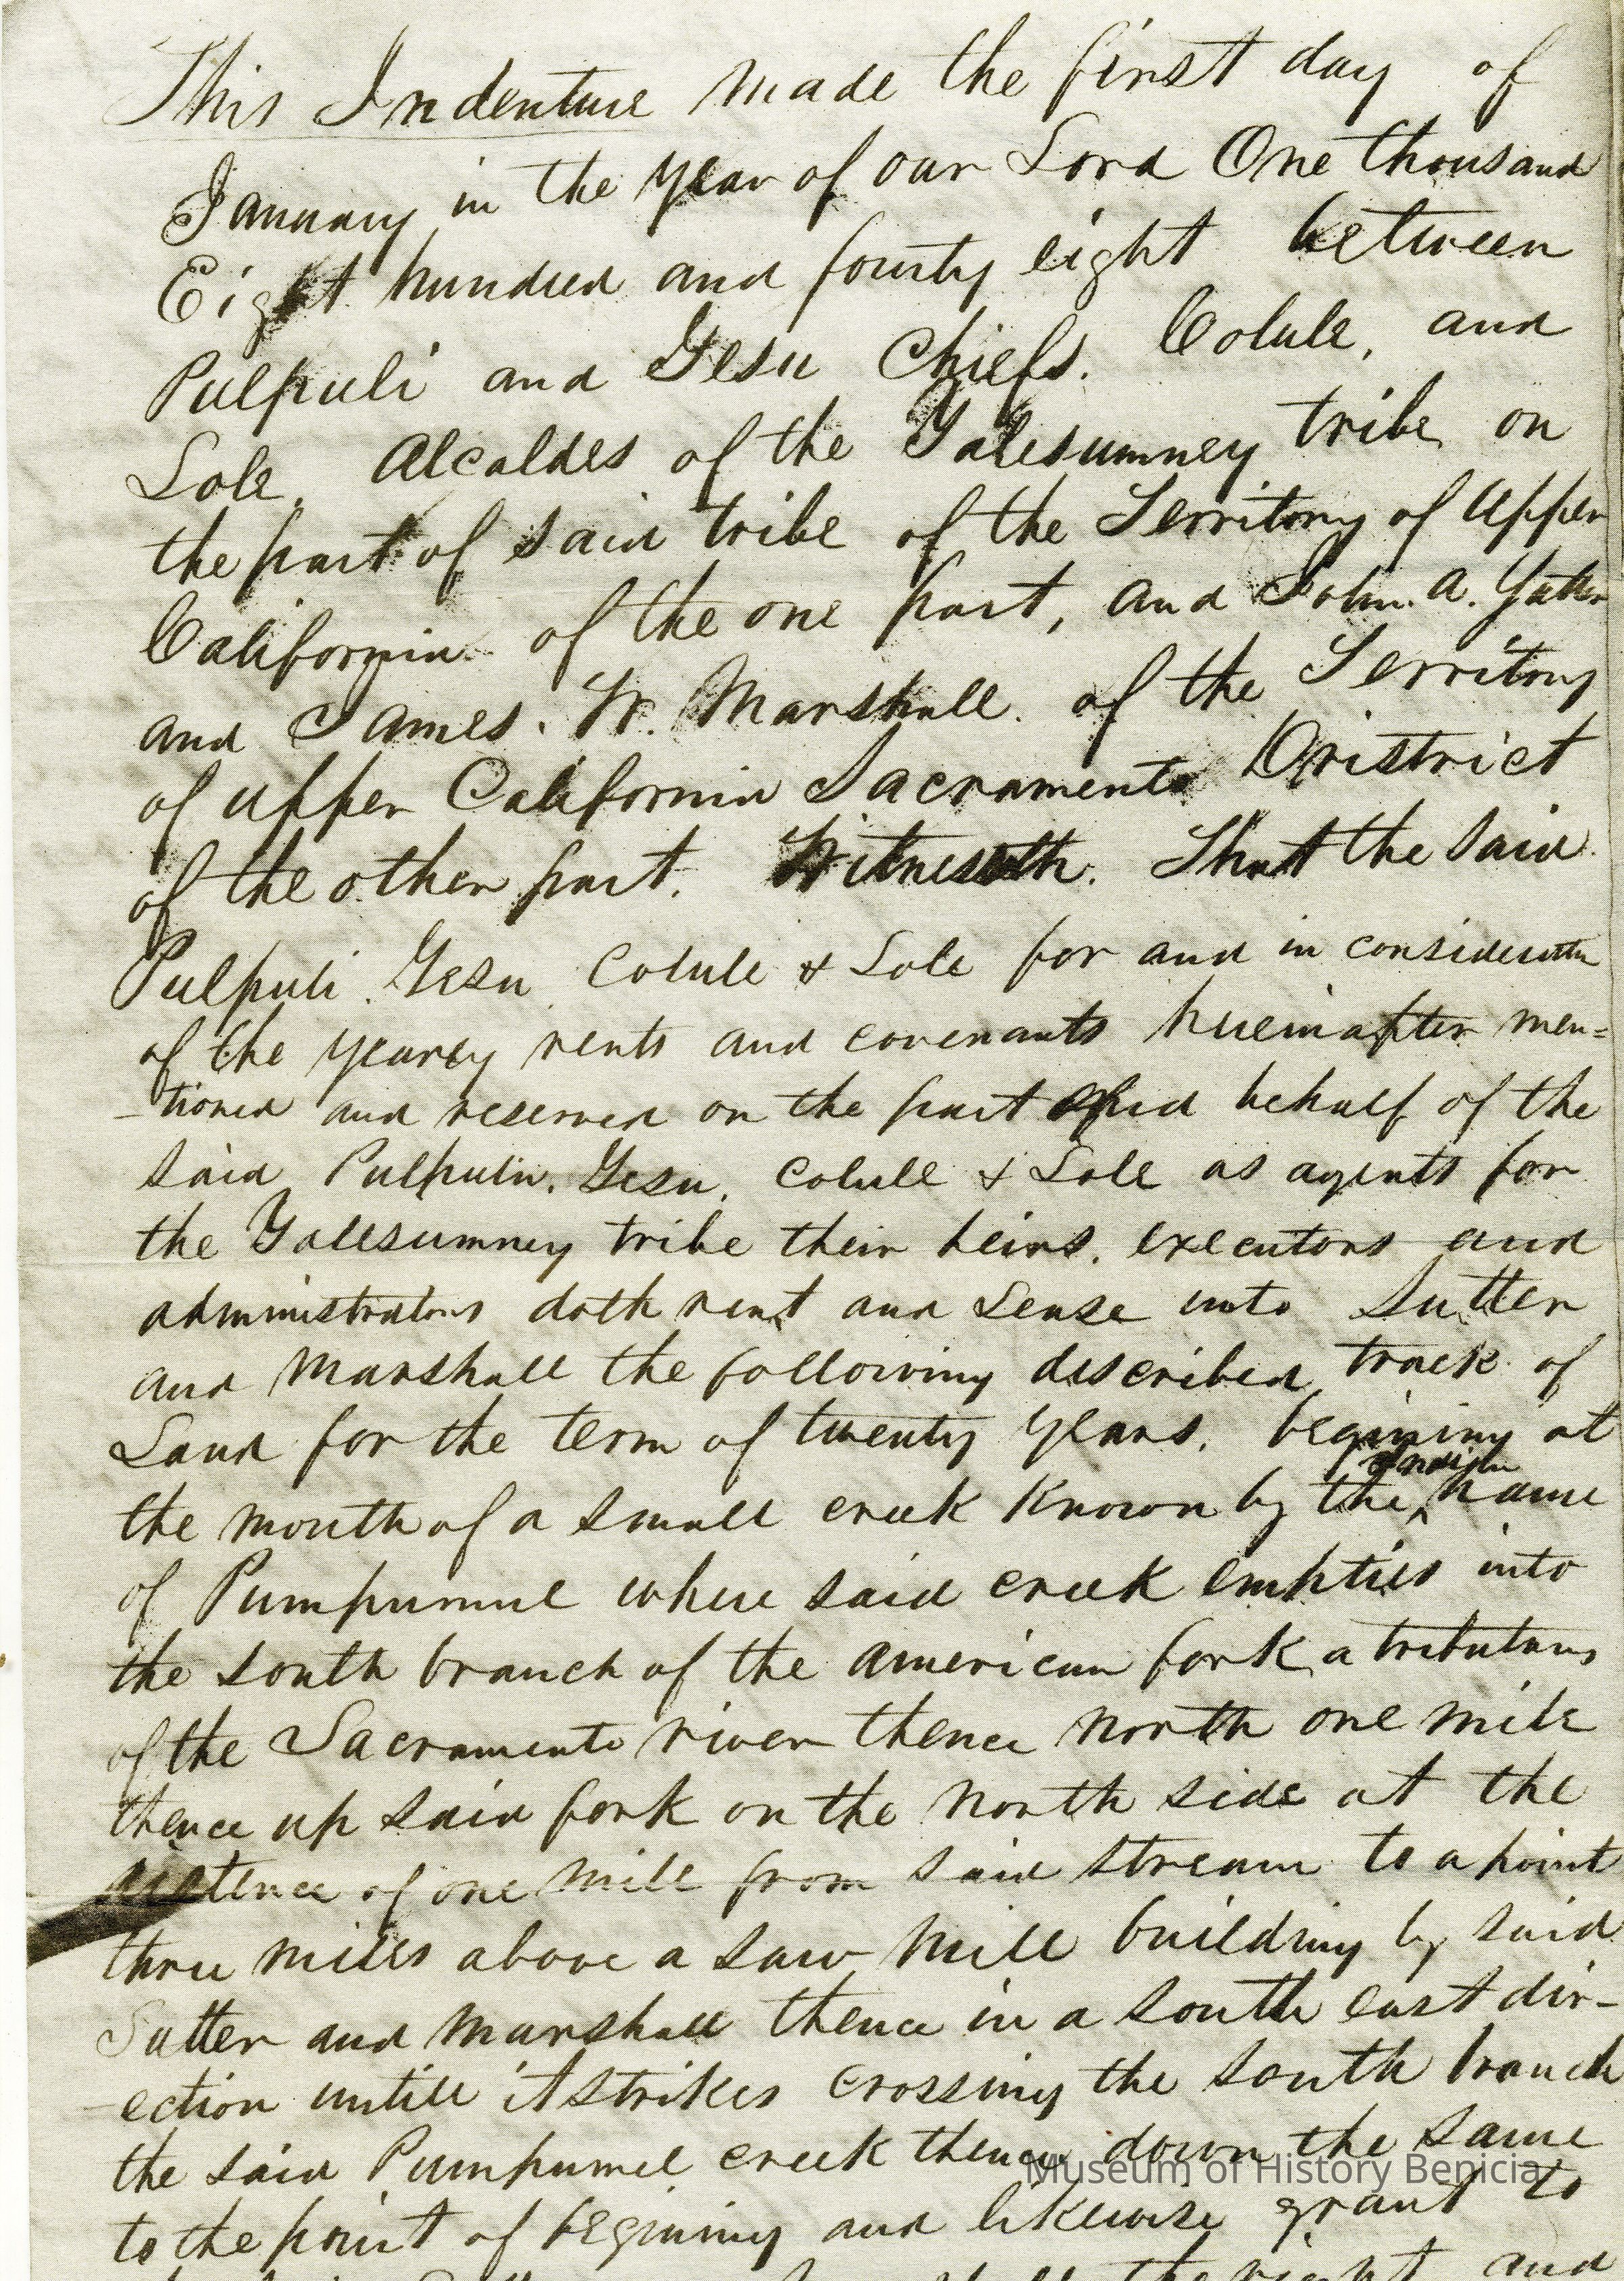 This Indenture made the first day of
January in the year of our Lord One thousand
Eight hundred and fourty eight between
Pulpuli and Gesu Chiefs. Colule, and
Sole, Alcaldes of the Yalesumney tribe on
the part of said tribe of the Territory of Upper
California of the one part, and John. A. Sutter
and James. W. Marshall. of the Territory
of upper California Sacramento Dristrict
of the other part. Witnesseth. That the said
Pulpuli. Gesu Colule & Sole for and in consideration
of the yearly rents and covenants hereinafter men=
-tioned and reserved on the part and behalf of the
said Pulpuli. Gesu. Colule & Sole as agents for
the Yalesumney tribe their heirs. executors and
administrators doth rent and Lease unto Sutter
and Marshall the following described track of
Land for the term of twenty years. begining at
the mouth of a small creek known by the name
of Pumpumul where said creek empties into
the south branch of the American fork a tributary
of the Sacramento river thence North one mile
thence up said fork on the North side at the
distence of one mile from said stream to a point
three miles above a saw mill building by said
Sutter and Marshall thence in a south east dir-
-ection untill it strikes crossing the south branch
the said Pumpumel creek thence down the same
Museum of History Benicia
to the point of begining and likewise grant to
the right and